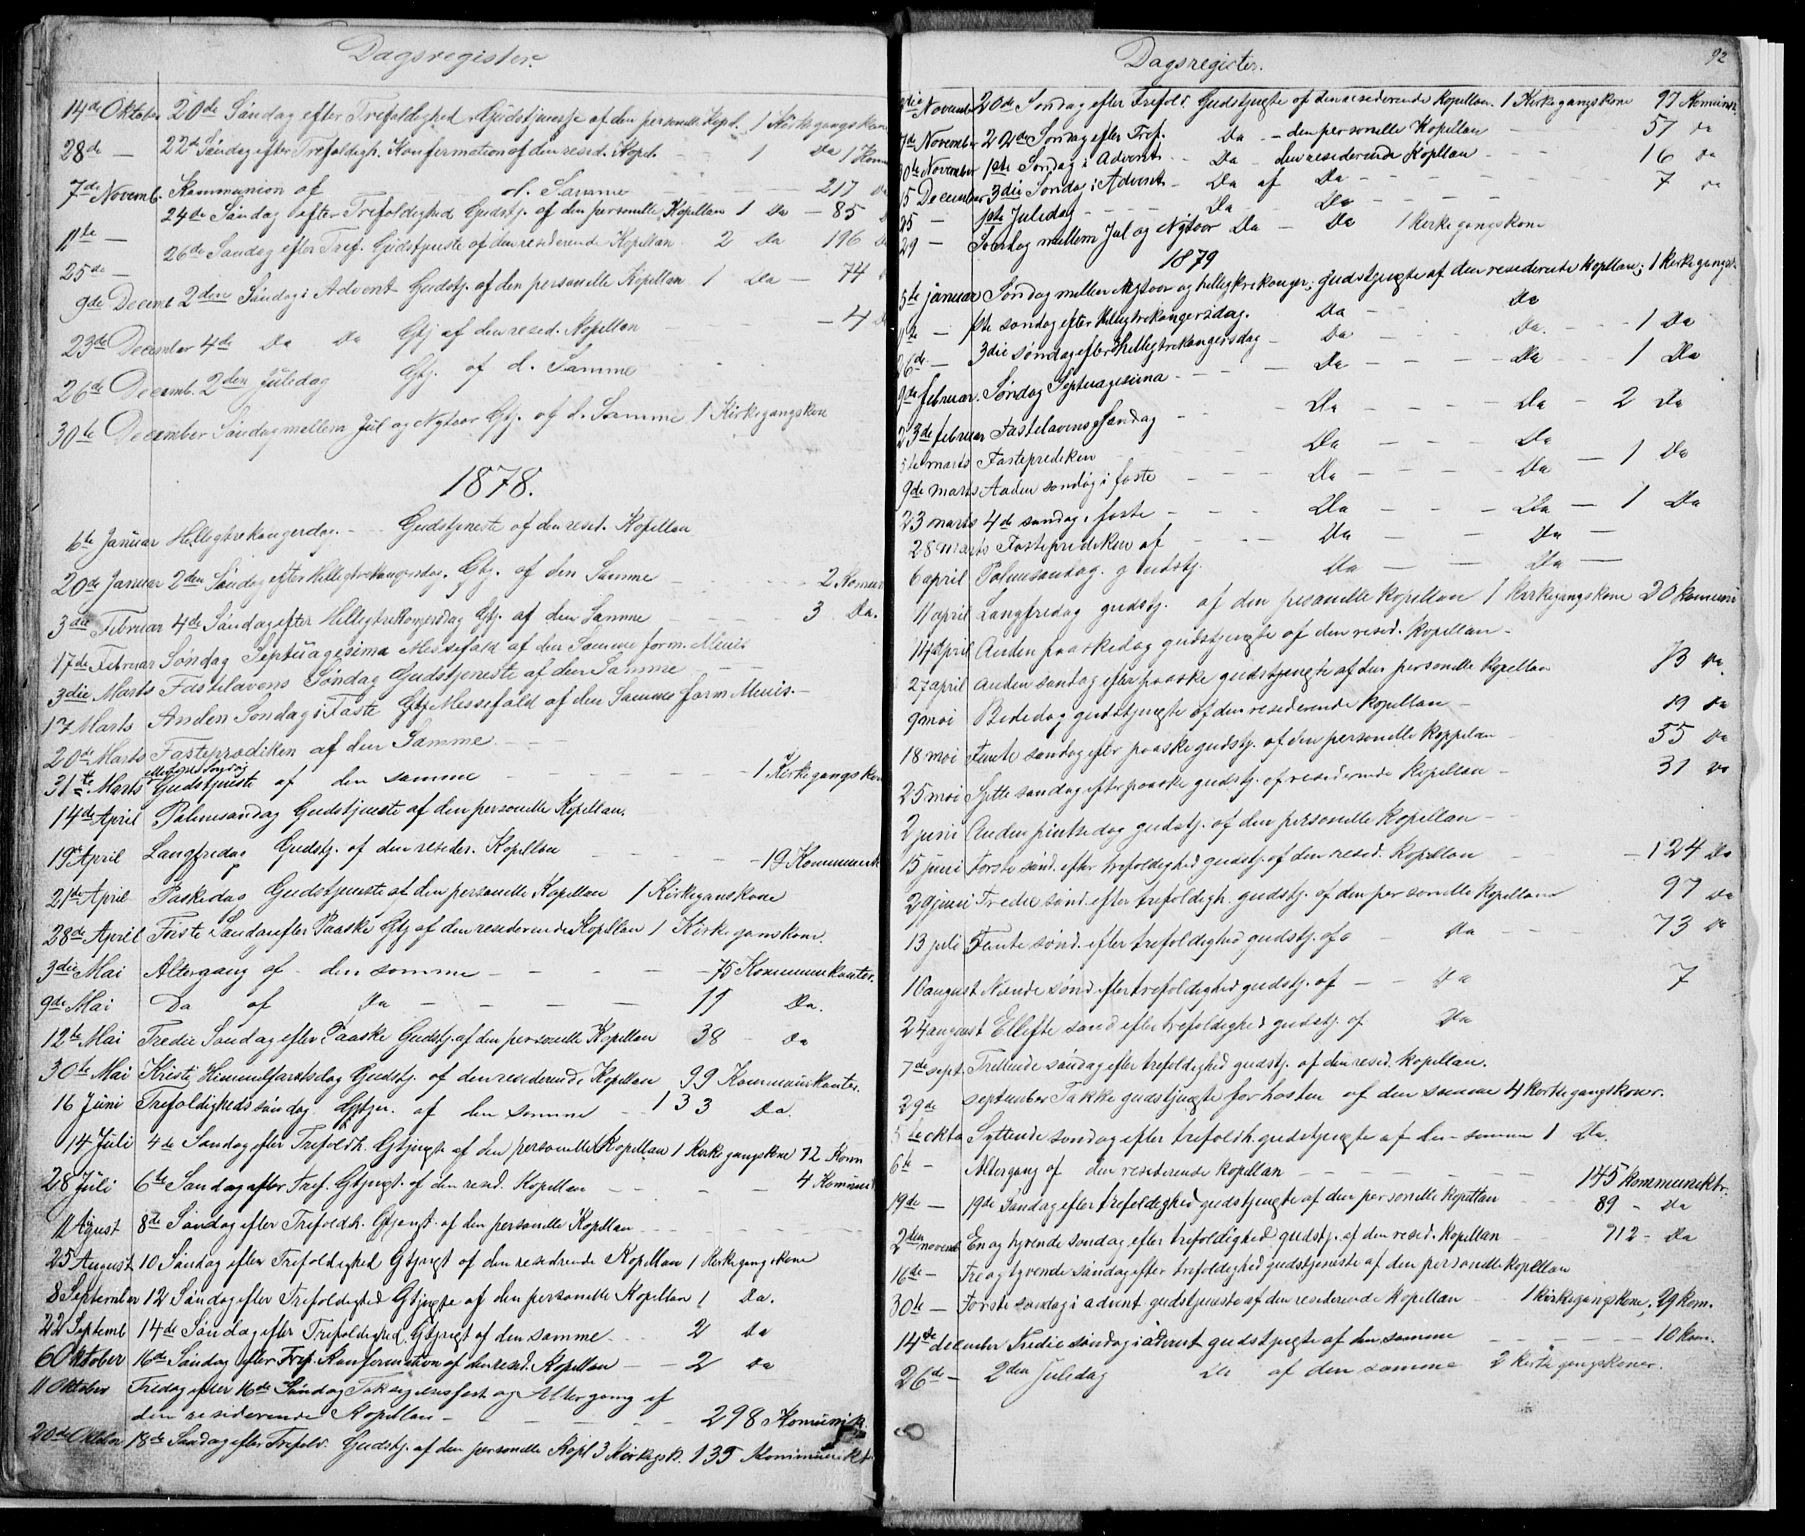 Dagsregister.
14de Oktober 20de Søndag efter Trefoldighed Gudstjeneste af den personelle Kapl. 1 Kirkegangskone
28de — 22de Søndag efter Trefoldigh. Konfermation af den resid. Kapl. 1 Da 1 Komu
7de Novemb. Kommunion af d. Samme 217 Da
11te — 24de Søndag efter Trefoldighed Gudstj. af den personelle Kapellan 1 Da — 85
25de — 26de Søndag efter Tref. Gudstjeneste af den residerende Kapellan 2 Da 196 Da
9de Decemb 2den Søndag i Advent Gudstj. af den personelle Kapellan 1 Da — 74
23de December 4de Da Da Gtj af den resid. Kapellan — 4 Da
26de Decemb. 2den Juledag Gtj. af d. Samme
30te December Søndag mellem Jul og Nytaar Gtj. af d. Samme 1 Kirkegangskone
1878.
6te Januar Helligtrekongerdag. — Gudstjeneste af den resid. Kapellan
20de Januar 2den Søndag efter Helligtrekongersdag. Gtj. af den Samme — 2 Komun
3die Februar 4de Søndag efter Helligtrekongersdag Gtj. af den Samme — 3 Da.
17de Februar Søndag Septuagesima Messefald af den Samme form. Menis
3die Marts Fastelavens Søndag Gudstjeneste af den Samme
17 Marts Anden Søndag i Faste Gtj Messefald af den Sammes form Menis. —
20de Marts Fasteprædiken af den Samme. —
Midfaste Søndag
31te Marts Gudstjeneste af den samme — 1 Kirkegangskon
14de April Palmesøndag Gudstjeneste af den personelle Kapellan.
19de April Langfredag Gudstj. af den resider. Kapellan — 19 Kommunik
21de April Paskedag Gudstjeneste af den personelle Kapellan 1 Kirkeganskone
28de April Første Søndag efter Paaske Gtj af den residerende Kapellan 1 Kirkeganskone.
3die Mai Altergang af den samme — 75 Kommunikanter.
9de Mai Da af Da — 11 Da.
12te Mai Tredie Søndag efter Paaske Gudstj. af den personelle Kapellan 38 — Da
30te Mai Kristi Himmelfartsdag Gudstj. af den residerende Kapellan 99 Kommunikanter.
16 Juni Trefoldigheds søndag Gtjen. af den samme — 133 Da.
14 Juli 4de Søndag efter Trefoldh. Gtjenst. af den personelle Kapellan 1 Kirkegangskone 72 Kom
28 Juli 6te Søndag efter Tref. Gtjenst. af den resid. Kapellan — 4 Kommu
11 August 8de Søndag efter Trefoldh. Gtjenst. af den personelle Kapellan —
25 August 10 Søndag efter Trefoldighed Gtjenst af den residrende Kapellan 1 Kirkegangskone
8 September 12 Søndag efter Trefoldighed Gtjenste af den personelle Kapellan 1 Da.
22 Septemb 14de Søndag efter Trefoldighed. Gtjenst af den samme. 2 Da
6 Oktober 16de Søndag efter Tref. Konfermation af den resid. Kapellan — 2 Da
11 Oktober Fredag efter 16de Søndag Taksigelsesfest og Altergang af
den residerende Kapellan — 298 Komunik.
20de Oktober 18de Søndag efter Trefold. Gudstj. af den personelle Kapl 3 Kirkegsk. 135 Kommunikt
Dagsregister.
92
November 20de Søndag efter Trefold. Gudstjenste af den residerende Kapellan. 1 Kirkegangskone 97 Komunik.
November 22de Søndag efter Tref. Da — den personelle Kapellan — 57 Da
November 1ste Søndag i Advent — Da — den residerende Kapellan — 16 Da
15 December 3die Søndag i Advent — Da af Da — 7 Da
25 — 1ste Juledag — Da — Da —
29 — Søndag mellem Jul og Nytaar Da — Da 1 Kirkegangskone
1879
5te januar Søndag mellem Nytaar og helligtrekonger, gudstjenste af den residerende kapellan; 1 kirkegangsk.
— 1ste søndag efter Helligtrekongersdag. Da — Da
26de — 3die søndag efter Helligtrekongersdag — Da — Da. — 1 Da
9de februar. Søndag Septuagesima — Da — Da — 1 Da
23de februar Fastelavens søndag — Da — Da — 2 Da
5te marts Fasteprediken — Da — Da
9de marts Anden søndag i faste — Da — Da — 1 Da
23 marts 4de søndag i faste — Da — Da — 1 Da
28 marts Fasteprediken af — Da — Da —
6 april Palmesøndag. gudstj. Da — Da —
11 april Langfredag gudstj. af den pesonelle kapellan 1 kirkegangskone 20 komuni
14de april Anden paaskedag gudstjenste af den resid. kapellan —
27 april Anden søndag efter paaske gudstjenste af den personelle kapellan 13 Da
9 mai Bededag gudstjenste af den residerende kapellan — 19 Da
18 mai Femte søndag efter paaske gudstj. af den personelle kappelan — 55 Da
25 mai Sjette søndag efter paaske gudstj. af residerende kapellan — 31 Da
2 juni Anden pintsedag gudstj. af den personelle kapellan —
15 juni Første sønd. efter trefoldighed gudstj. af den resid. kapellan — 124 Da
29 juni Tredie sønd. efter trefoldigh. gudstj. af den personelle kapellan 97 Da
13 juli Femte sønd. efter trefoldighed gudstj. af — Da — 73 Da
10 august Niende sønd. efter trefoldighed gudstj. af — Da 7
24 august Ellefte sønd efter trefoldighed gudstj. af Da
7de sept. Trettende søndag efter trefoldighed gudstj. af den resid. kapellan.
29de september Takke gudstjenste for høsten af den samme 4 kirkegangskoner.
5te okto Syttende søndag efter trefoldh. gudstjenste af den samme 1 Da.
6te — Altergang af den residerende kapellan — 145 kommuniktr.
19de — 19de Søndag efter trefoldighed gudstjenste af den personelle kapellan 89 — Da
2den novemb En og tyvende søndag efter trefoldighed gudstj. af den resid. kapellan — 212 — Da
16de — Tre og tyvende søndag efter trefoldighed gudstjeneste af den personelle kapellan
30te — Første søndag i advent gudstjenste af den residerende kapellan — 1 kirkegangskone, 29 kom.
14de december Tredie søndag i advent gudstjenste af den samme — 10 kom.
26de — 2den Juledag Da af den samme 2 kirkegangskoner.